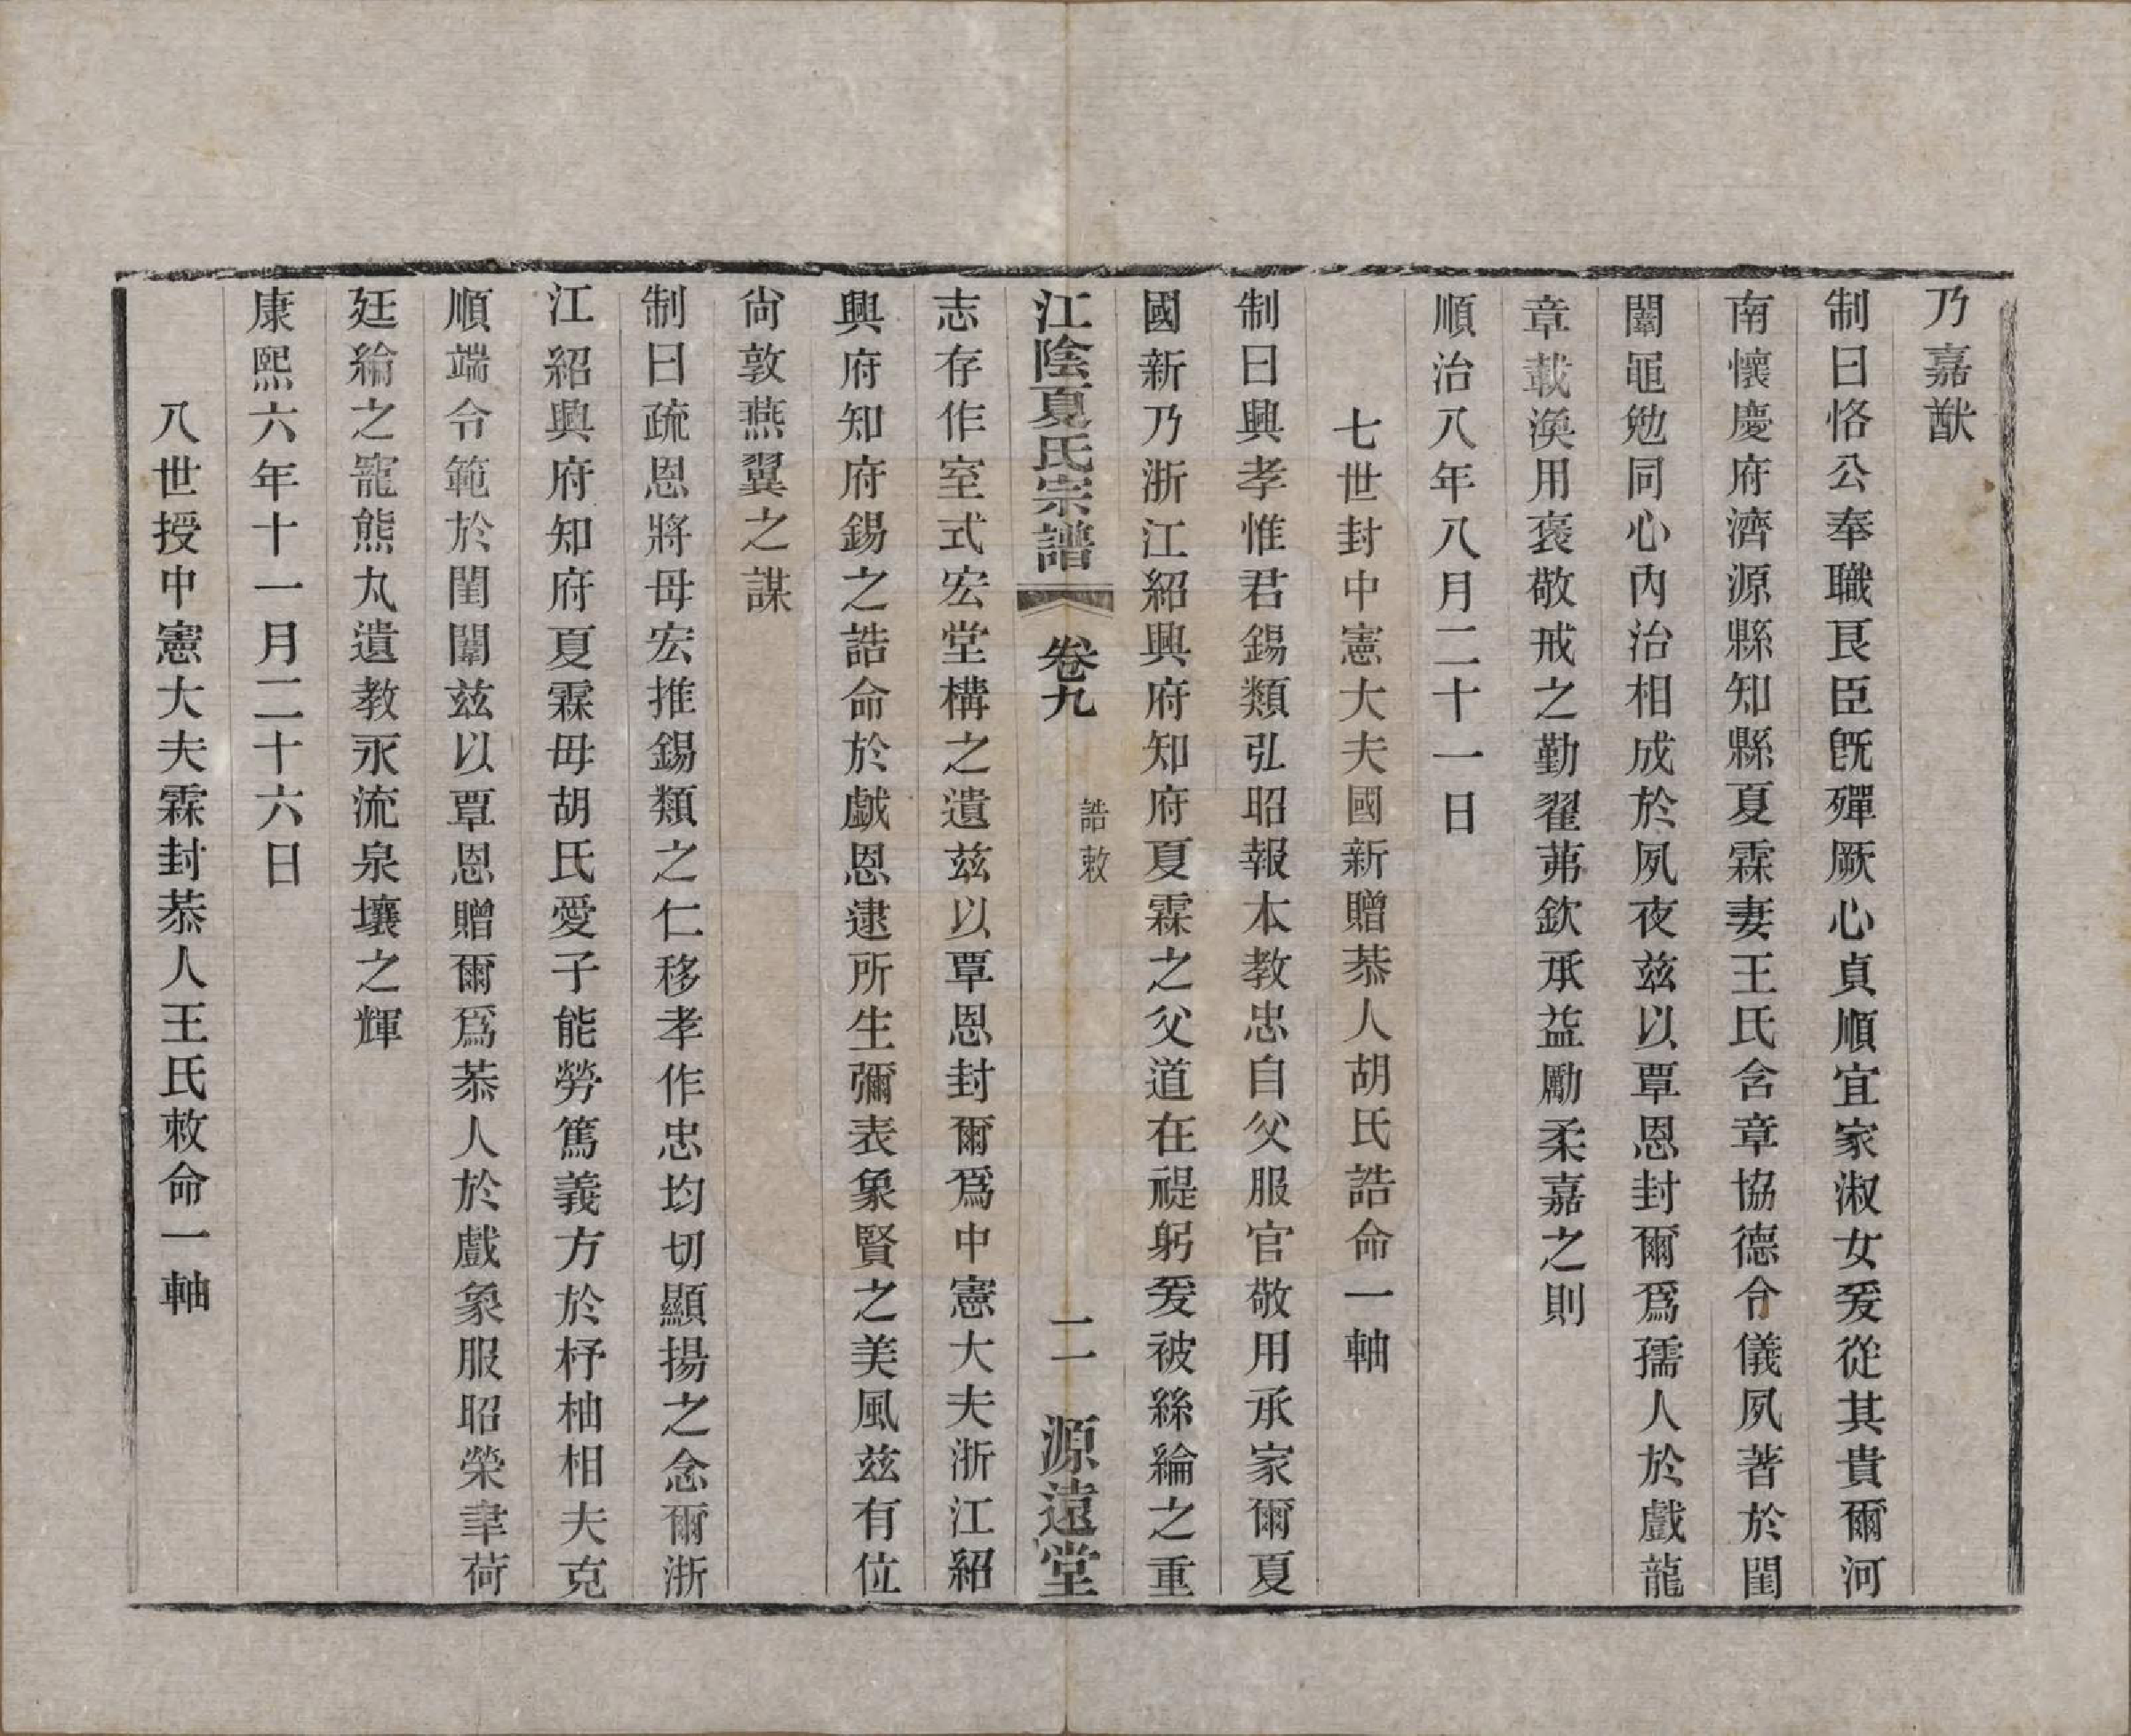 乃嘉猷
制曰恪公奉職艮臣旣殫厥心貞順宜家淑女爰從其貴爾河
南懷慶府濟源縣知縣夏霖妻王氏含章協德令儀夙著於閨
闈黽勉同心內治相成於夙夜兹以覃恩封爾爲孺人於戲龍
章載渙用褒敬戒之勤翟茀欽承益勵柔嘉之則
順治八年八月二十一日
七世封中憲大夫國新贈恭人胡氏誥命一軸
制曰興孝惟君錫類弘昭報本教忠自父服官敬用承家爾夏
國新乃浙江紹興府知府夏霖之父道在禔躬爰被絲綸之重
江陰夏氏宗譜 卷九 誥敕 二 源遠堂
志存作室式宏堂構之遺兹以覃恩封爾爲中憲大夫浙江紹
興府知府錫之誥命於戯恩逮所生彌表象賢之美風兹有位
尙敦燕翼之謀
制曰疏恩將母宏推錫類之仁移孝作忠均切顯揚之念爾浙
江紹興府知府夏霖母胡氏愛子能勞篤義方於杼柚相夫克
順端令範於閨闈兹以覃恩贈爾爲恭人於戲象服昭榮聿荷
廷綸之寵熊丸遺教永流泉壤之輝
康熙六年十一月二十六日
八世授中憲大夫霖封恭人王氏敕命一軸